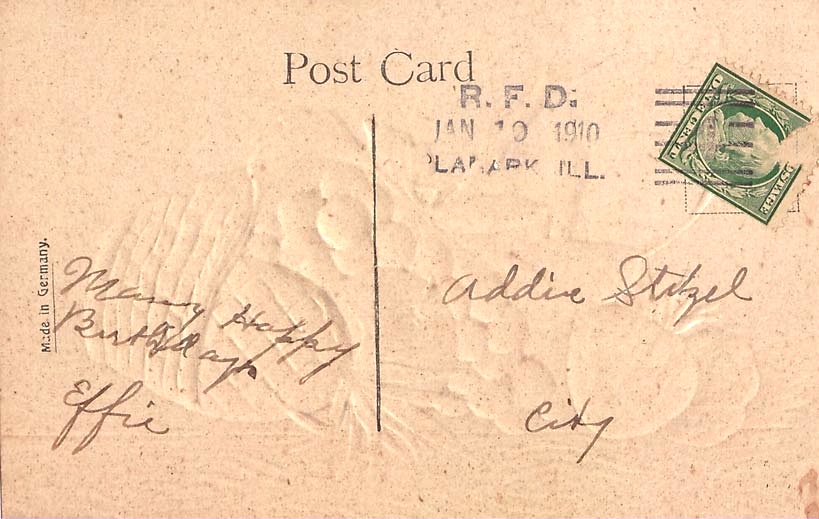 Post Card
R. F. D.
JAN 10 1910
LANARK ILL.
Made in Germany.
Many Happy
Birthdays
Effie
Addie Stitzel
City